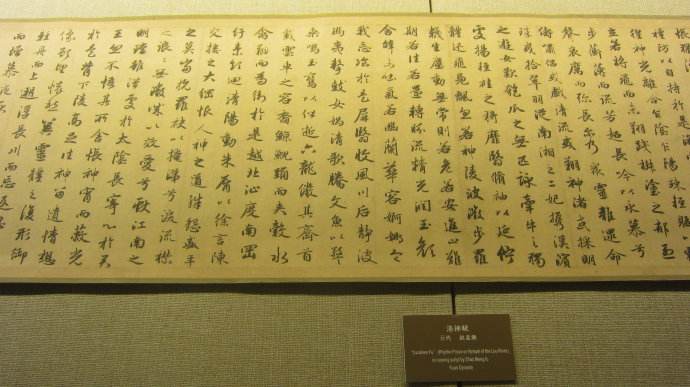 禮防以自持於是洛
徨神光離合乍陰乍陽竦輕軀以鶴
立若將飛而未翔踐椒塗之郁烈
步蘅薄而流芳超長吟以永慕兮
聲哀厲而彌長爾乃衆靈雜遝命
儔嘯侶或戲清流或翔神渚或採明
珠或拾翠羽從南湘之二妃攜漢濱
之遊女歎匏瓜之無匹詠牽牛之獨
處揚輕袿之猗靡翳脩袖以延佇
體迅飛鳧飄忽若神陵波微步羅
襪生塵動無常則若危若安進止難
期若往若還轉眄流精光潤玉顏
含辭未吐氣若幽蘭華容婀娜令
我忘飡於是屏翳收風川后靜波
馮夷擊鼓女媧清歌騰文魚以警
乘鳴玉鸞以偕逝六龍儼其齊首
載雲車之容裔鯨鯢踊而夾轂水
禽翔而爲衛於是越北沚度南岡
紆素領迴清陽動朱脣以徐言陳
交接之大綱恨人神之道殊怨盛年
之莫當抗羅袂以掩涕兮淚流襟
之浪浪無微情以效愛兮獻江南之
明璫雖潛處於太陰長寄心於君
王忽不悟其所舍悵神宵而蔽光
於是背下陵高足往神留遺情想
像顧望懷愁冀靈體之復形御
輕舟而上遡浮長川而忘返思
而增慕
洛神賦
元代 趙孟頫
"Luoshen Fu" (Rhythm Prose on Nymph of the Luo River),
in running script by Zhao Meng fu
Yuan Dynasty